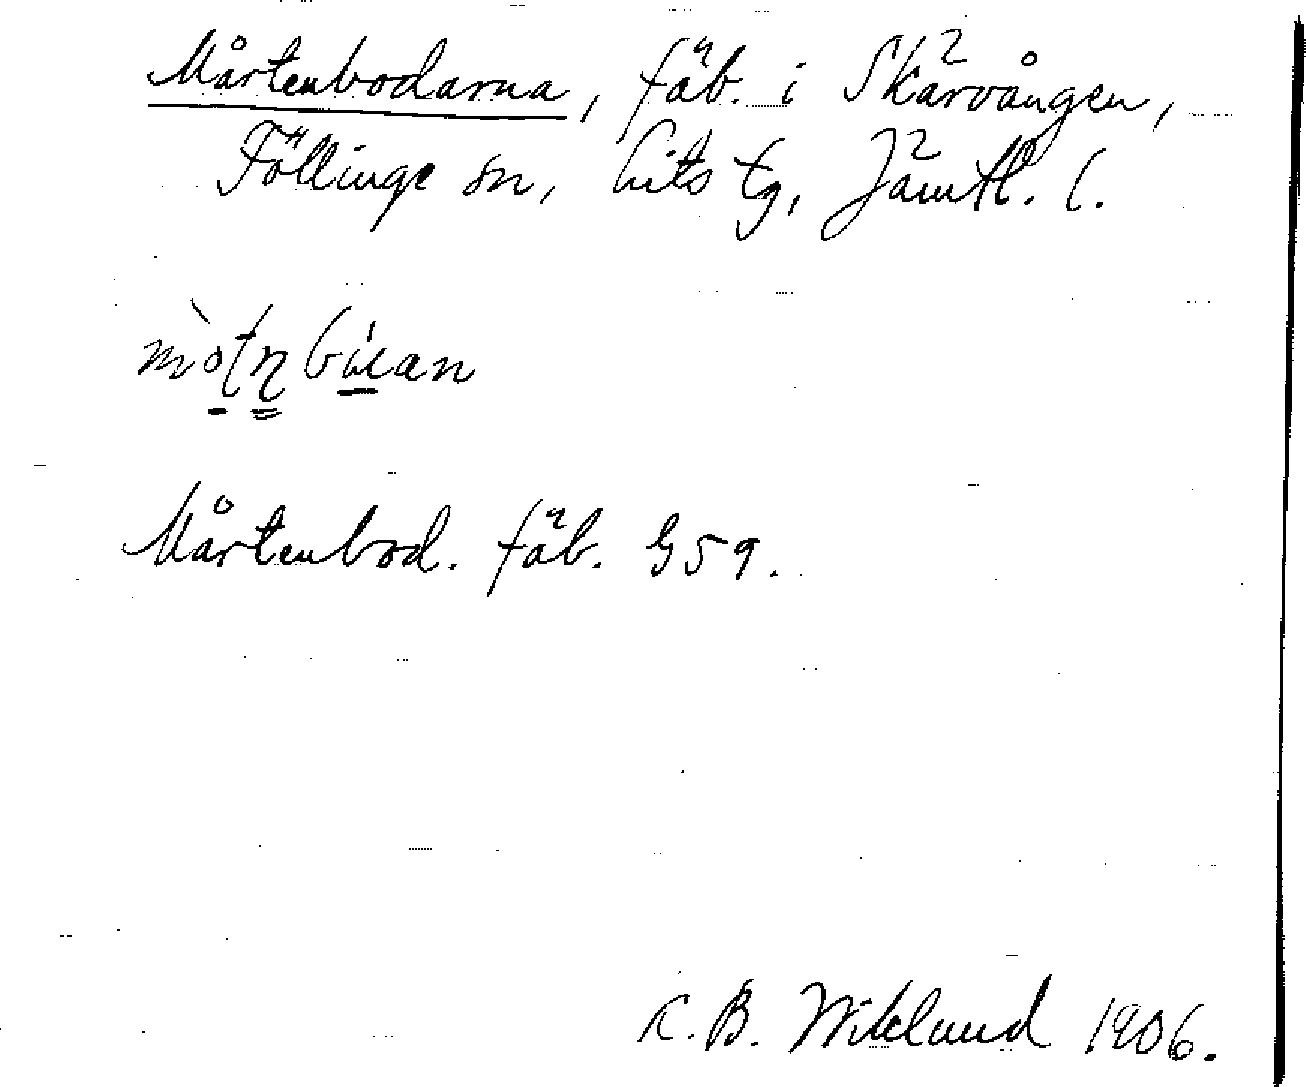 Mårtenbodarna, fäb. i Skärvången,
Föllinge sn, Lits tg, Jämtl. l.
Mårtenbod. fäb. G59.
K. B. Wiklund 1906.